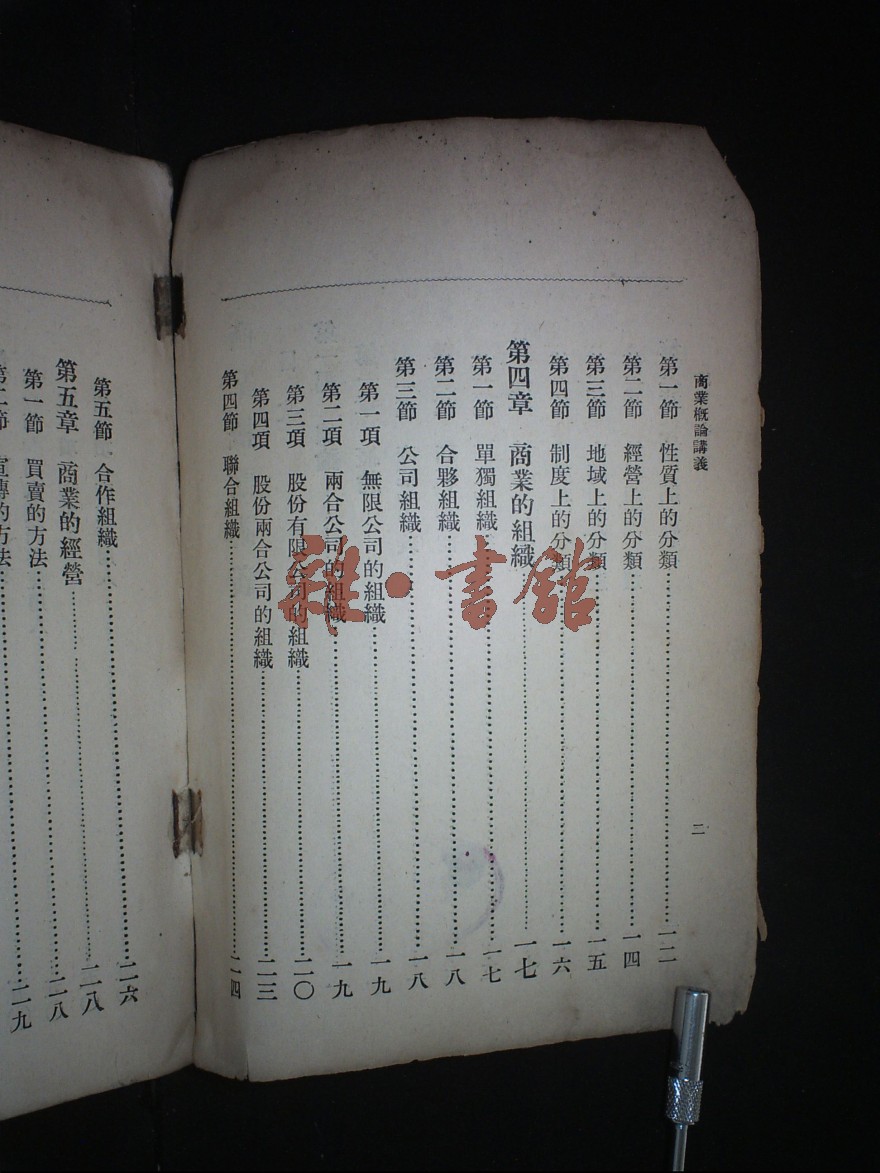 商業概論講義
二
第一節 性質上的分類 一二
第二節 經營上的分類 一四
第三節 地域上的分類 一五
第四節 制度上的分類 一六
第四章 商業的組織 一七
第一節 單獨組織 一七
第二節 合夥組織 一八
第三節 公司組織 一八
第一項 無限公司的組織 一九
第二項 兩合公司的組織 一九
第三項 股份有限公司的組織 二〇
第四項 股份兩合公司的組織 二三
第四節 聯合組織 二四
第五節 合作組織 二六
第五章 商業的經營 二八
第一節 買賣的方法 二八
第二節 宣傳的方法 二九
雜·書館